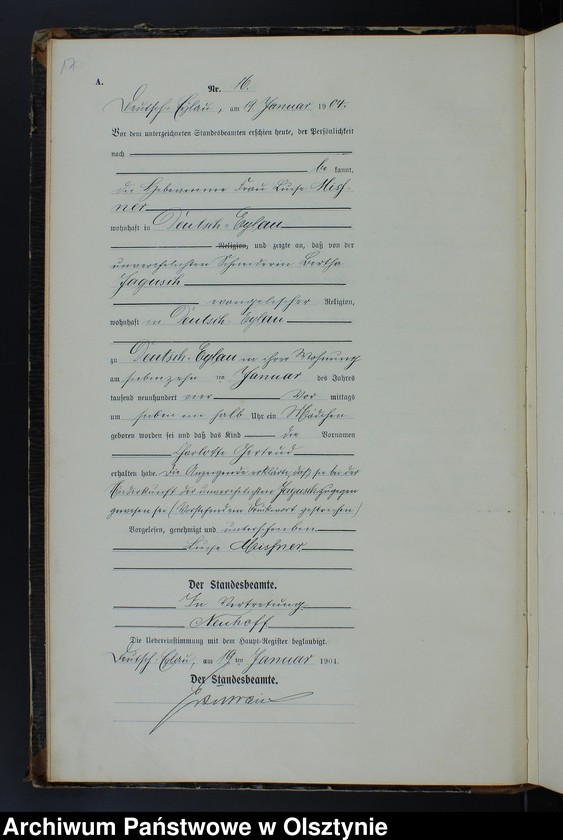 12
A.
Nr. 16.
Deutsch-Eylau, am 19 Januar 1904.
Vor dem unterzeichneten Standesbeamten erschien heute, der Persönlichkeit
nach
be kannt,
die Hebeamme Frau Luise Meiß-
ner
wohnhaft in Deutsch-Eylau
Religion, und zeigte an, daß von der
unverehelichten Schneiderin Bertha
Jagusch
evangelischer Religion,
wohnhaft in Deutsch-Eylau
zu Deutsch-Eylau in ihrer Wohnung
am siebenzehn ten Januar des Jahres
tausend neunhundert vier Vor mittags
um sieben ein halb Uhr ein Mädchen
geboren worden sei und daß das Kind die Vornamen
Charlotte Gertrud
erhalten habe. Die Anzeigende erklärte, daß sie bei der
Niederkunft der unverehelichten Jagusch zugegen
gewesen sei (Vorstehend ein Druckwort gestrichen)
Vorgelesen, genehmigt und unterschrieben
Luise Meißner
Der Standesbeamte.
In Vertretung
Neuhoff
Die Uebereinstimmung mit dem Haupt-Register beglaubigt.
Deutsch-Eylau, am 19 ten Januar 1904.
Der Standesbeamte.
Archiwum Państwowe w Olsztynie